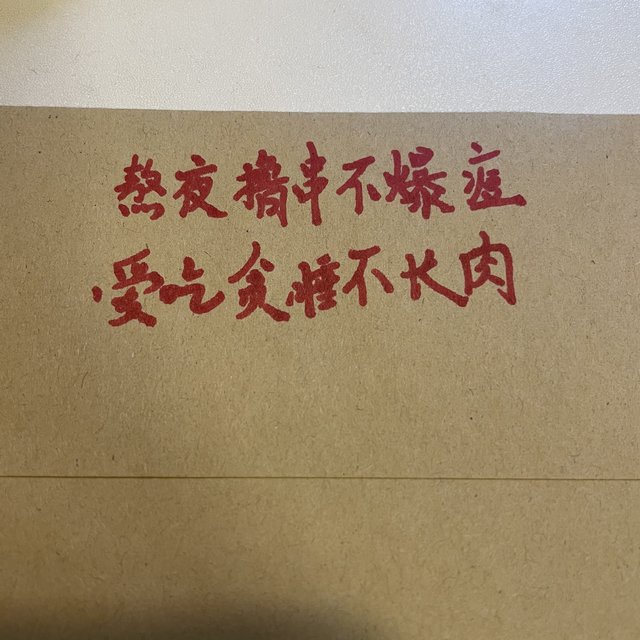 熬夜撸串不爆痘
爱吃贪睡不长肉